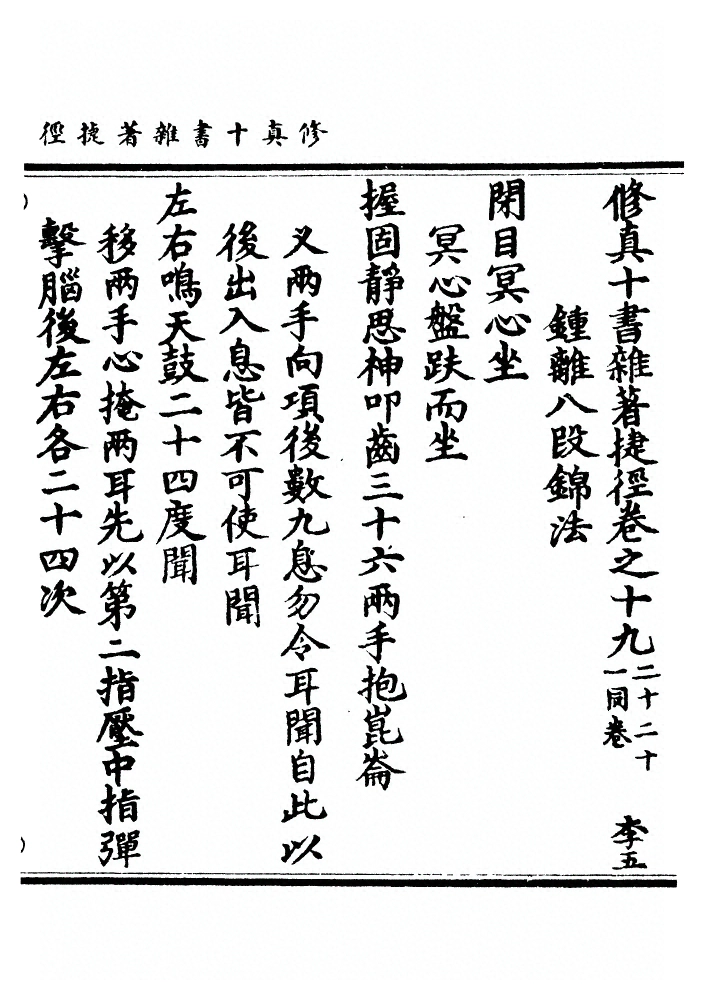 修真十書雜著捷徑
修真十書雜著捷徑卷之十九二十二十一同卷 李五
鍾離八段錦法
閉目冥心坐
冥心盤趺而坐
握固靜思神叩齒三十六兩手抱崑崙
叉兩手向項後數九息勿令耳聞自此以
後出入息皆不可使耳聞
左右鳴天鼓二十四度聞
移兩手心掩兩耳先以第二指壓中指彈
擊腦後左右各二十四次